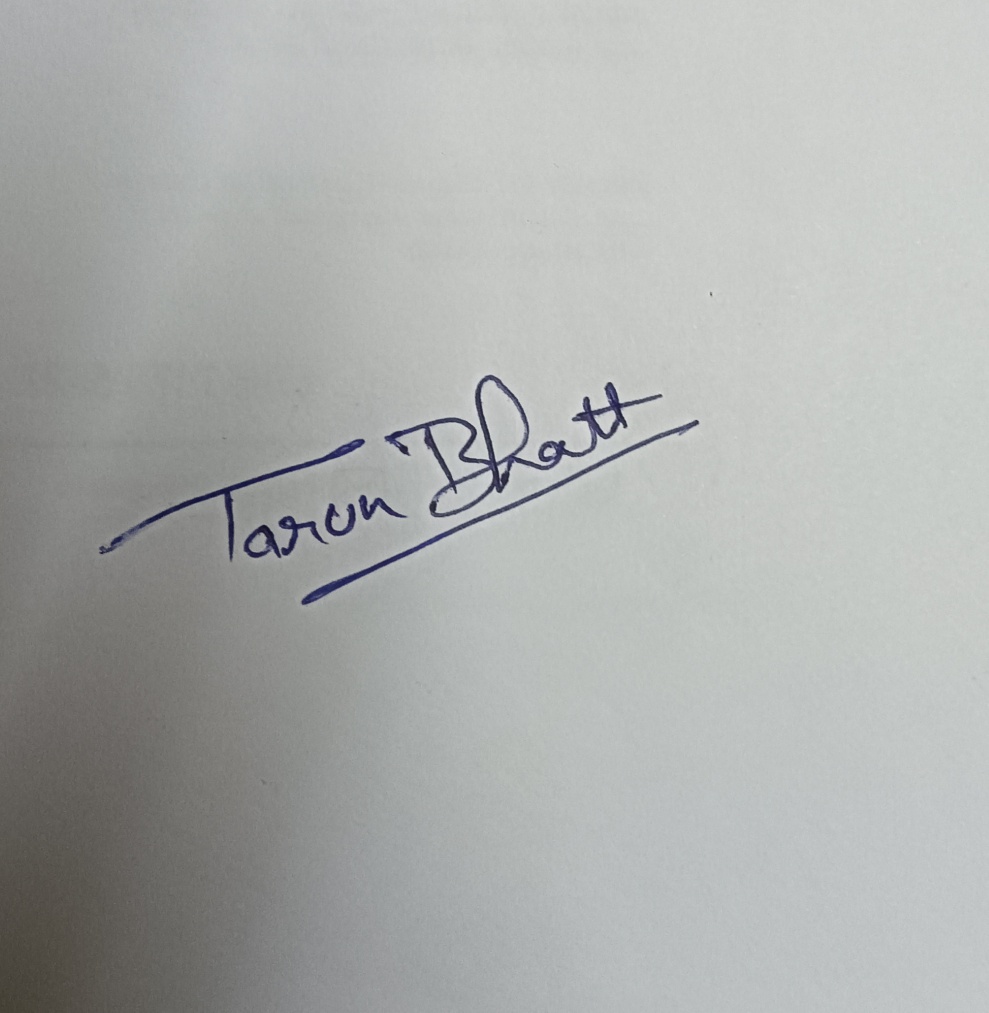 Tarun Bhatt